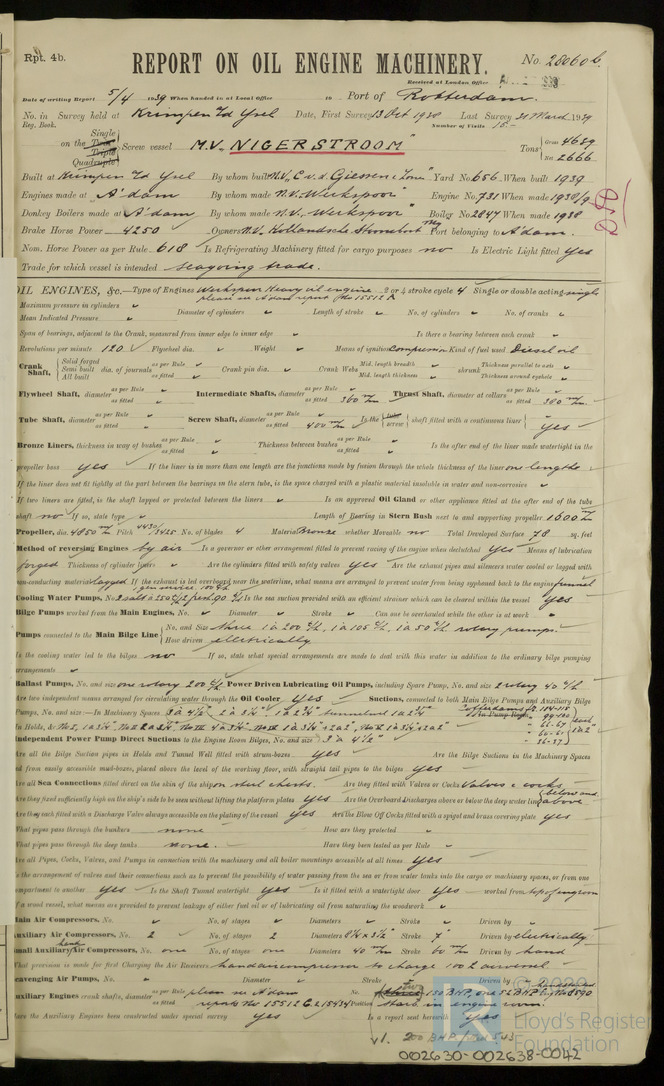 Rpt. 4b.
REPORT ON OIL ENGINE MACHINERY.
No. 28060 b.
Received at London Office
Date of writing Report 5/4 1939 When handed in at Local Office 19 Port of Rotterdam.
No. in Survey held at Krimpen a/d Ysel Date, First Survey 13 Oct 1938 Last Survey 31 March 1939
Reg. Book. Number of Visits 15
on the Single Twin Triple Quadruple Screw vessel M.V. "NIGERSTROOM" Tons Gross 4639 Net 2666
Built at Krimpen a/d Ysel By whom built N.V. C. v. d. Giessen & Zonen Yard No 656 When built 1939
Engines made at A'dam By whom made N.V. "Werkspoor" Engine No. 731 When made 1938/9
Donkey Boilers made at A'dam By whom made N.V. "Werkspoor" Boiler No. 2847 When made 1938
Brake Horse Power 4250 Owners N.V. Hollandsche Stoomboot My. Port belonging to A'dam.
Nom. Horse Power as per Rule 618 Is Refrigerating Machinery fitted for cargo purposes no Is Electric Light fitted yes
Trade for which vessel is intended seagoing trade.
OIL ENGINES, &c. Type of Engines Werkspoor Heavy oil engine 2 or 4 stroke cycle 4 Single or double acting single
please see A'dam report No 15512 A
Maximum pressure in cylinders Diameter of cylinders Length of stroke No. of cylinders No. of cranks
Mean Indicated Pressure
Span of bearings, adjacent to the Crank, measured from inner edge to inner edge Is there a bearing between each crank
Revolutions per minute 120 Flywheel dia. Weight Means of ignition Compression Kind of fuel used Diesel oil
Crank Shaft, Solid forged Semi built All built dia. of journals as per Rule as fitted Crank pin dia. Crank Webs Mid. length breadth Mid. length thickness shrunk Thickness parallel to axis Thickness around eyehole
Flywheel Shaft, diameter as per Rule as fitted Intermediate Shafts, diameter as per Rule as fitted 360 m/m Thrust Shaft, diameter at collars as per Rule as fitted 380 m/m
Tube Shaft, diameter as per Rule as fitted Screw Shaft, diameter as per Rule as fitted 400 m/m Is the tube screw shaft fitted with a continuous liner yes
Bronze Liners, thickness in way of bushes as per Rule as fitted Thickness between bushes as per Rule as fitted Is the after end of the liner made watertight in the
propeller boss yes If the liner is in more than one length are the junctions made by fusion through the whole thickness of the liner one length
If the liner does not fit tightly at the part between the bearings in the stern tube, is the space charged with a plastic material insoluble in water and non-corrosive
If two liners are fitted, is the shaft lapped or protected between the liners Is an approved Oil Gland or other appliance fitted at the after end of the tube
shaft no If so, state type Length of Bearing in Stern Bush next to and supporting propeller 1600 m/m
Propeller, dia. 4850 m/m Pitch 4430/3425 No. of blades 4 Material bronze whether Moveable no Total Developed Surface 78 sq. feet
Method of reversing Engines by air Is a governor or other arrangement fitted to prevent racing of the engine when declutched yes Means of lubrication
forced Thickness of cylinder liners Are the cylinders fitted with safety valves yes Are the exhaust pipes and silencers water cooled or lagged with
non-conducting material lagged If the exhaust is led overboard near the waterline, what means are arranged to prevent water from being syphoned back to the engine funnel
Cooling Water Pumps, No. Is the sea suction provided with an efficient strainer which can be cleared within the vessel yes
Bilge Pumps worked from the Main Engines, No. Diameter Stroke Can one be overhauled while the other is at work
Pumps connected to the Main Bilge Line No. and Size three 1 à 200 1 à 105 1 à 50 rotary pumps.
How driven electrically
Is the cooling water led to the bilges no If so, state what special arrangements are made to deal with this water in addition to the ordinary bilge pumping
arrangements
Ballast Pumps, No. and size one rotary 200 Power Driven Lubricating Oil Pumps, including Spare Pump, No. and size 2 rotary 40
Are two independent means arranged for circulating water through the Oil Cooler yes Suctions, connected to both Main Bilge Pumps and Auxiliary Bilge
Pumps, No. and size:—In Machinery Spaces 3 à 4½" 2 à 3¼" 1 à 2¼"
Independent Power Pump Direct Suctions to the Engine Room Bilges, No. and size 3 à 4½"
Are all the Bilge Suction pipes in Holds and Tunnel Well fitted with strum-boxes yes Are the Bilge Suctions in the Machinery Spaces
led from easily accessible mud-boxes, placed above the level of the working floor, with straight tail pipes to the bilges yes
Are all Sea Connections fitted direct on the skin of the ship on steel chests. Are they fitted with Valves or Cocks valves & cocks
Are they fixed sufficiently high on the ship's side to be seen without lifting the platform plates yes Are the Overboard Discharges above or below the deep water line below and above
Are they each fitted with a Discharge Valve always accessible on the plating of the vessel yes Are the Blow Off Cocks fitted with a spigot and brass covering plate yes
What pipes pass through the bunkers none How are they protected
What pipes pass through the deep tanks none. Have they been tested as per Rule
Are all Pipes, Cocks, Valves, and Pumps in connection with the machinery and all boiler mountings accessible at all times yes
Is the arrangement of valves and their connections such as to prevent the possibility of water passing from the sea or from water tanks into the cargo or machinery spaces, or from one
compartment to another yes Is the Shaft Tunnel watertight yes Is it fitted with a watertight door yes worked from top of engroom
If a wood vessel, what means are provided to prevent leakage of either fuel oil or of lubricating oil from saturating the woodwork
Main Air Compressors, No. No. of stages Diameters Stroke Driven by
Auxiliary Air Compressors, No. 2 No. of stages 2 Diameters Stroke 7" Driven by electrically
Small Auxiliary Air Compressors, No. one No. of stages one Diameters 40 m/m Stroke 60 m/m Driven by hand
What provision is made for first Charging the Air Receivers hand air compressor to charge
Scavenging Air Pumps, No. Diameter Stroke Driven by
Auxiliary Engines crank shafts, diameter as per Rule as fitted please see A'dam reports No 15512 Position in engine room.
Have the Auxiliary Engines been constructed under special survey yes Is a report sent herewith yes
© 2020
Lloyd's Register
Foundation
002630-002638-0042